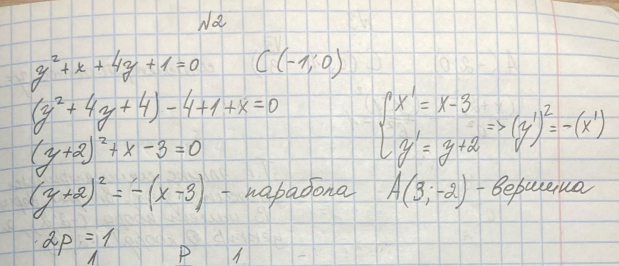 №2
y² + x + 4y + 1 = 0 C (-1; 0)
(y² + 4y + 4) - 4 + 1 + x = 0
(y+2)² + x - 3 = 0
{ x' = x - 3
y' = y + 2 => (y')² = -(x')
(y+2)² = -(x-3) - парабола A(3; -2) - вершина
2p = 1
1 P 1